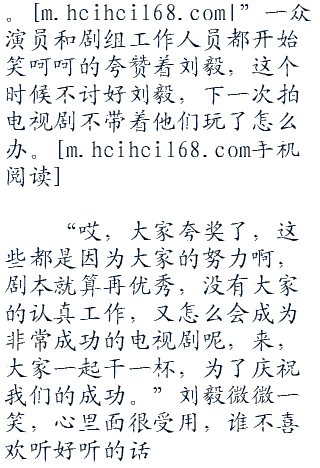 。[m.hcihci168.com|”一众
演员和剧组工作人员都开始
笑呵呵的夸赞着刘毅，这个
时候不讨好刘毅，下一次拍
电视剧不带着他们玩了怎么
办。[m.hcihci168.com手机
阅读]
“哎，大家夸奖了，这
些都是因为大家的努力啊，
剧本就算再优秀，没有大家
的认真工作，又怎么会成为
非常成功的电视剧呢，来，
大家一起干一杯，为了庆祝
我们的成功。”刘毅微微一
笑，心里面很受用，谁不喜
欢听好听的话